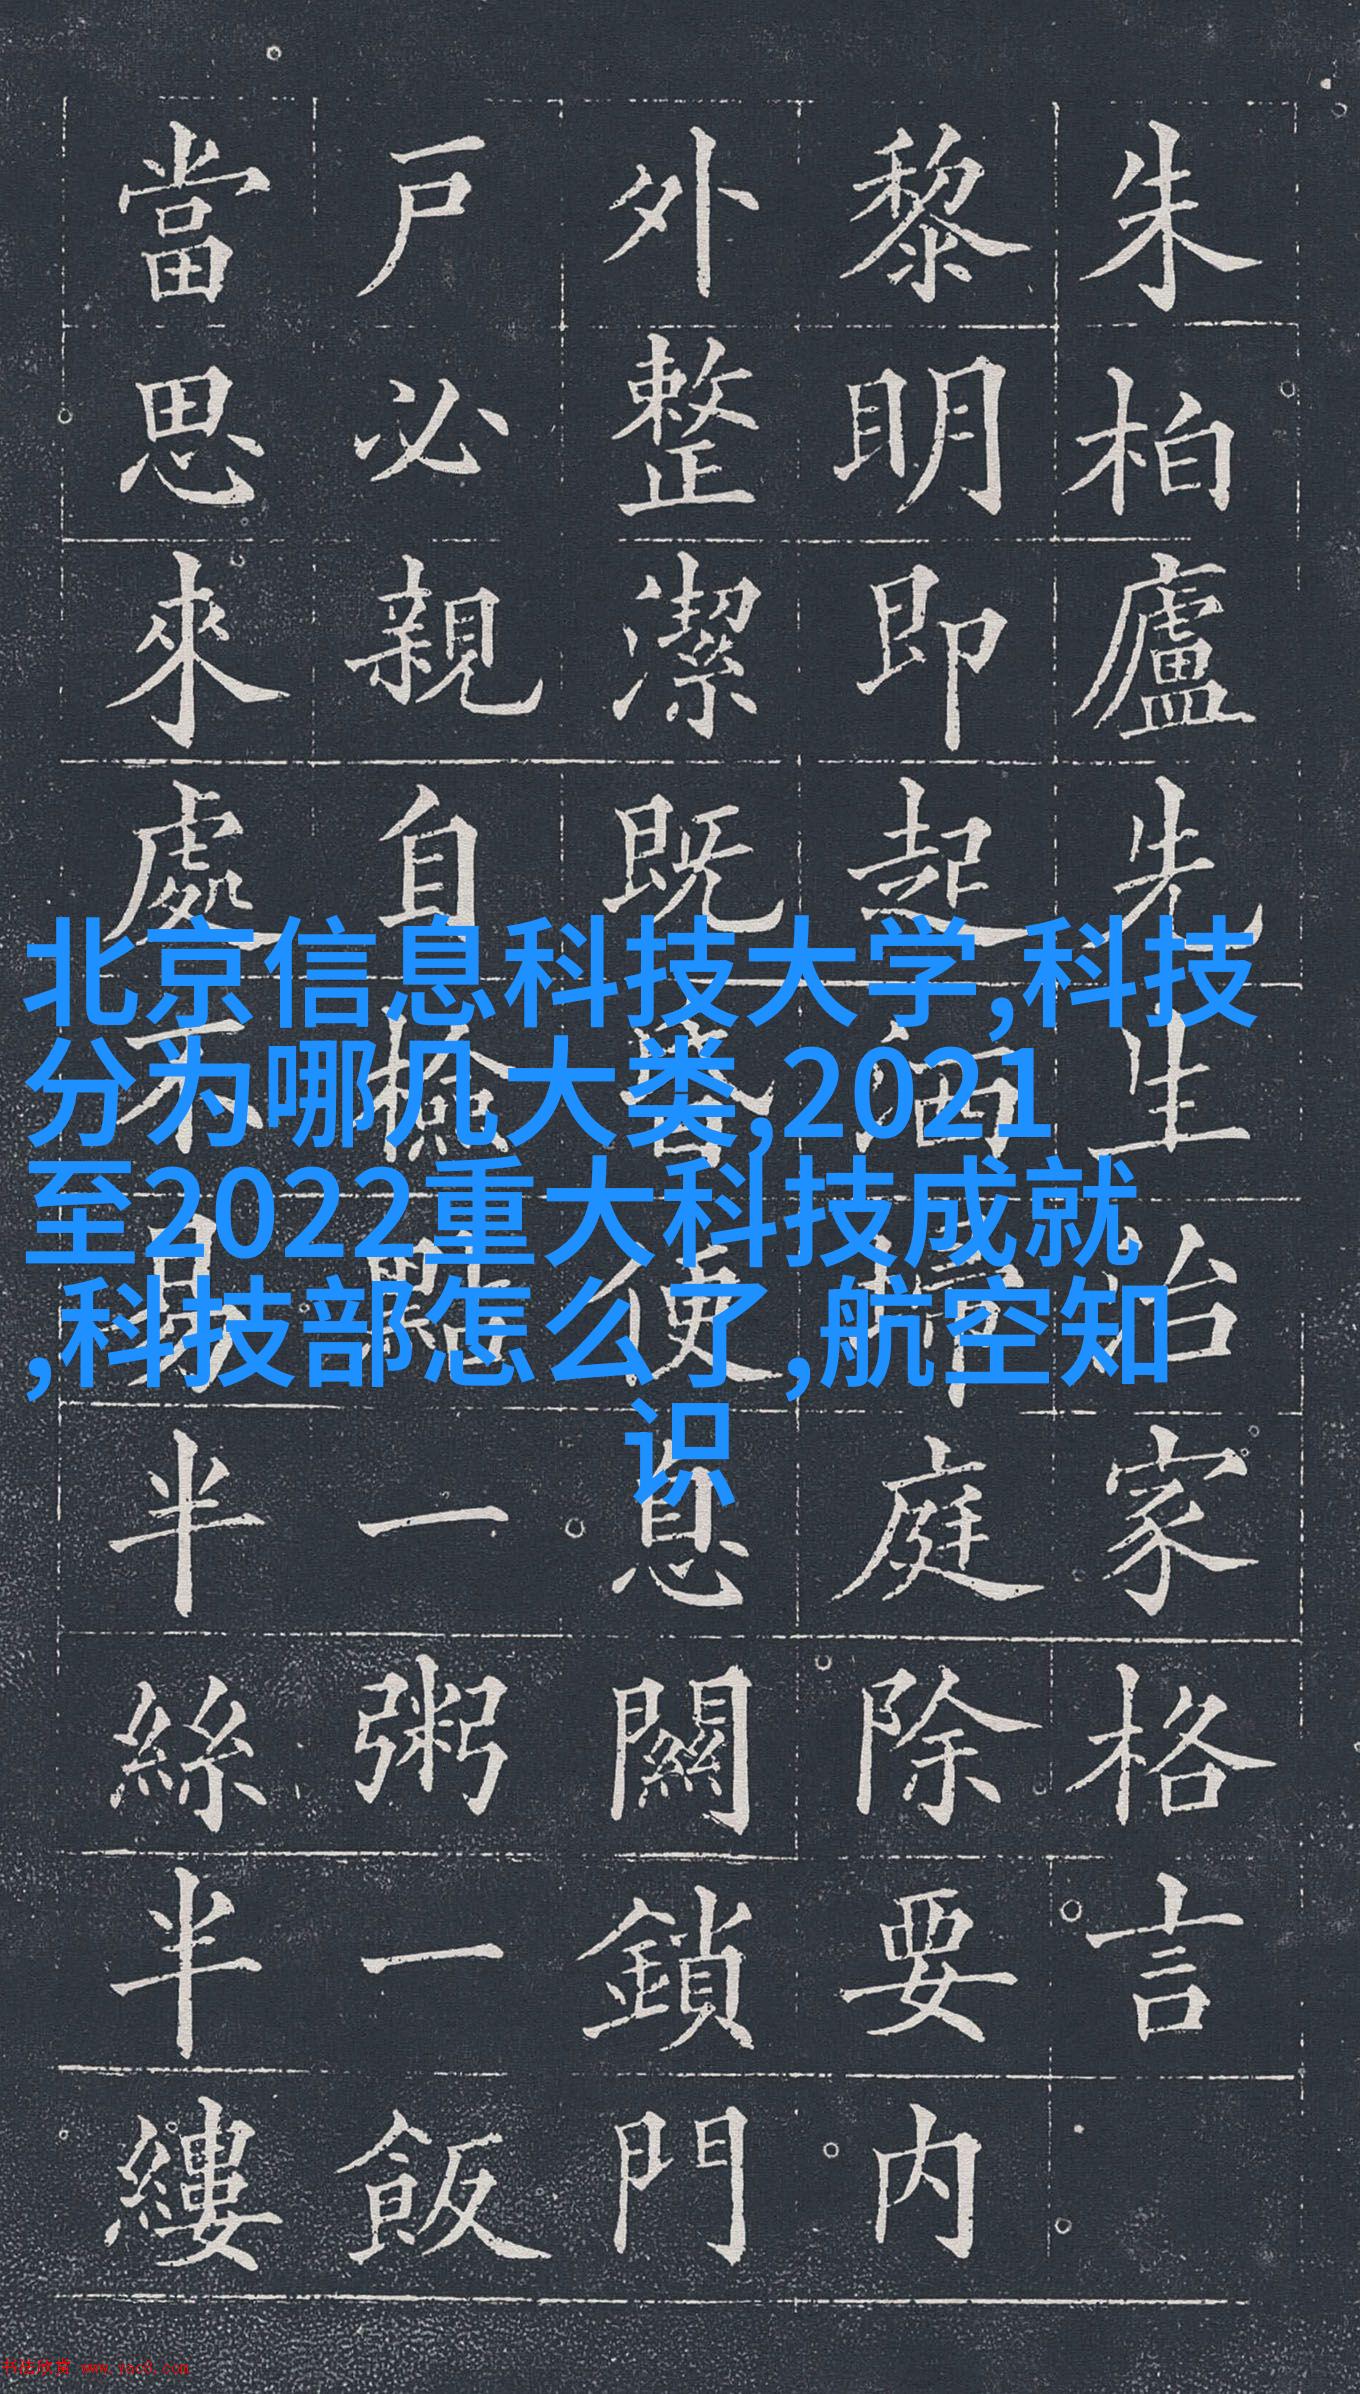 朱柏廬先生治家格言
黎明即起洒掃庭除要内
外整潔既昏便息關鎖門
户必親自檢點一粥一飯
當思來處不易半絲半縷
北京信息科技大学,科技
分为哪几大类,2021
至2022重大科技成就
,科技部怎么了,航空知
识
书法欣赏 www.yac8.com